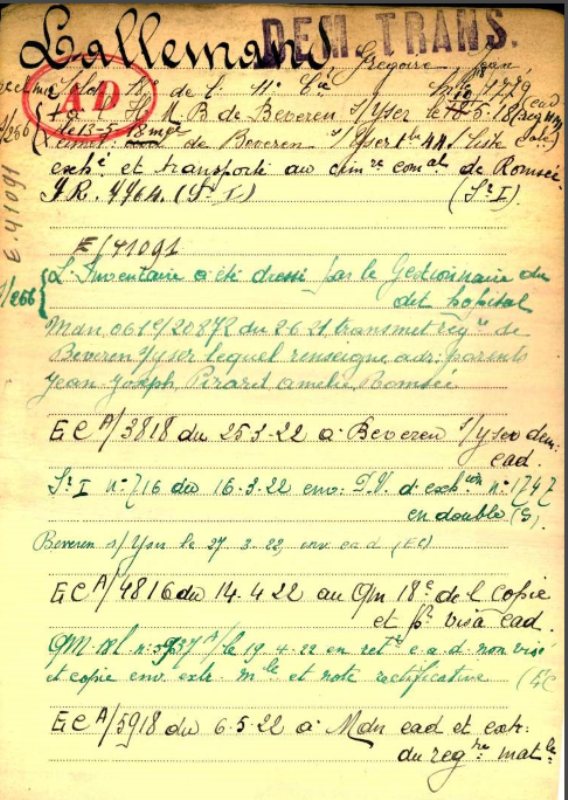 DEM. TRANS.
Lallemand, Grégoire, Jean
AD
Sold. 18e de l. 11e Cie 118/1779
+ à l'H. M. B de Beveren s/Yser le 18-5-18 (cad
de 13-5 de Beveren s/Yser tbe 44. Liste
exhé et transporté au cimre comal de Romsée.
J.R. 4764. (St I) (St I)
E/41091
E.41091
1/266 { L'Inventaire a été dressé par le Gestionnaire du
dit hopital
Mdn 061e/20872 du 2 6 21 transmet regre de
Beveren s/yser lequel renseigne adr: parents
Jean Joseph, Pirard Amelie, Romsée
E C A/3818 du 25 3-22 à Beveren s/yser dem:
ead.
St I n° 716 du 16-3-22 env: P.V. d'exhion n° 1747
en double (S).
Beveren s/Yser le 27 3-22, env. ead (EC)
E C A/4816 du 14.4 22 au QM 18e de l copie
et pr visa ead.
QM 18l n: 3937 A/le 19.4-22 en rette e.a.d. non visé
et copie env. extr. mle et note rectificative (EC
E C A/5918 du 6-5-22 à Mdn ead et extr:
du regtre matle: